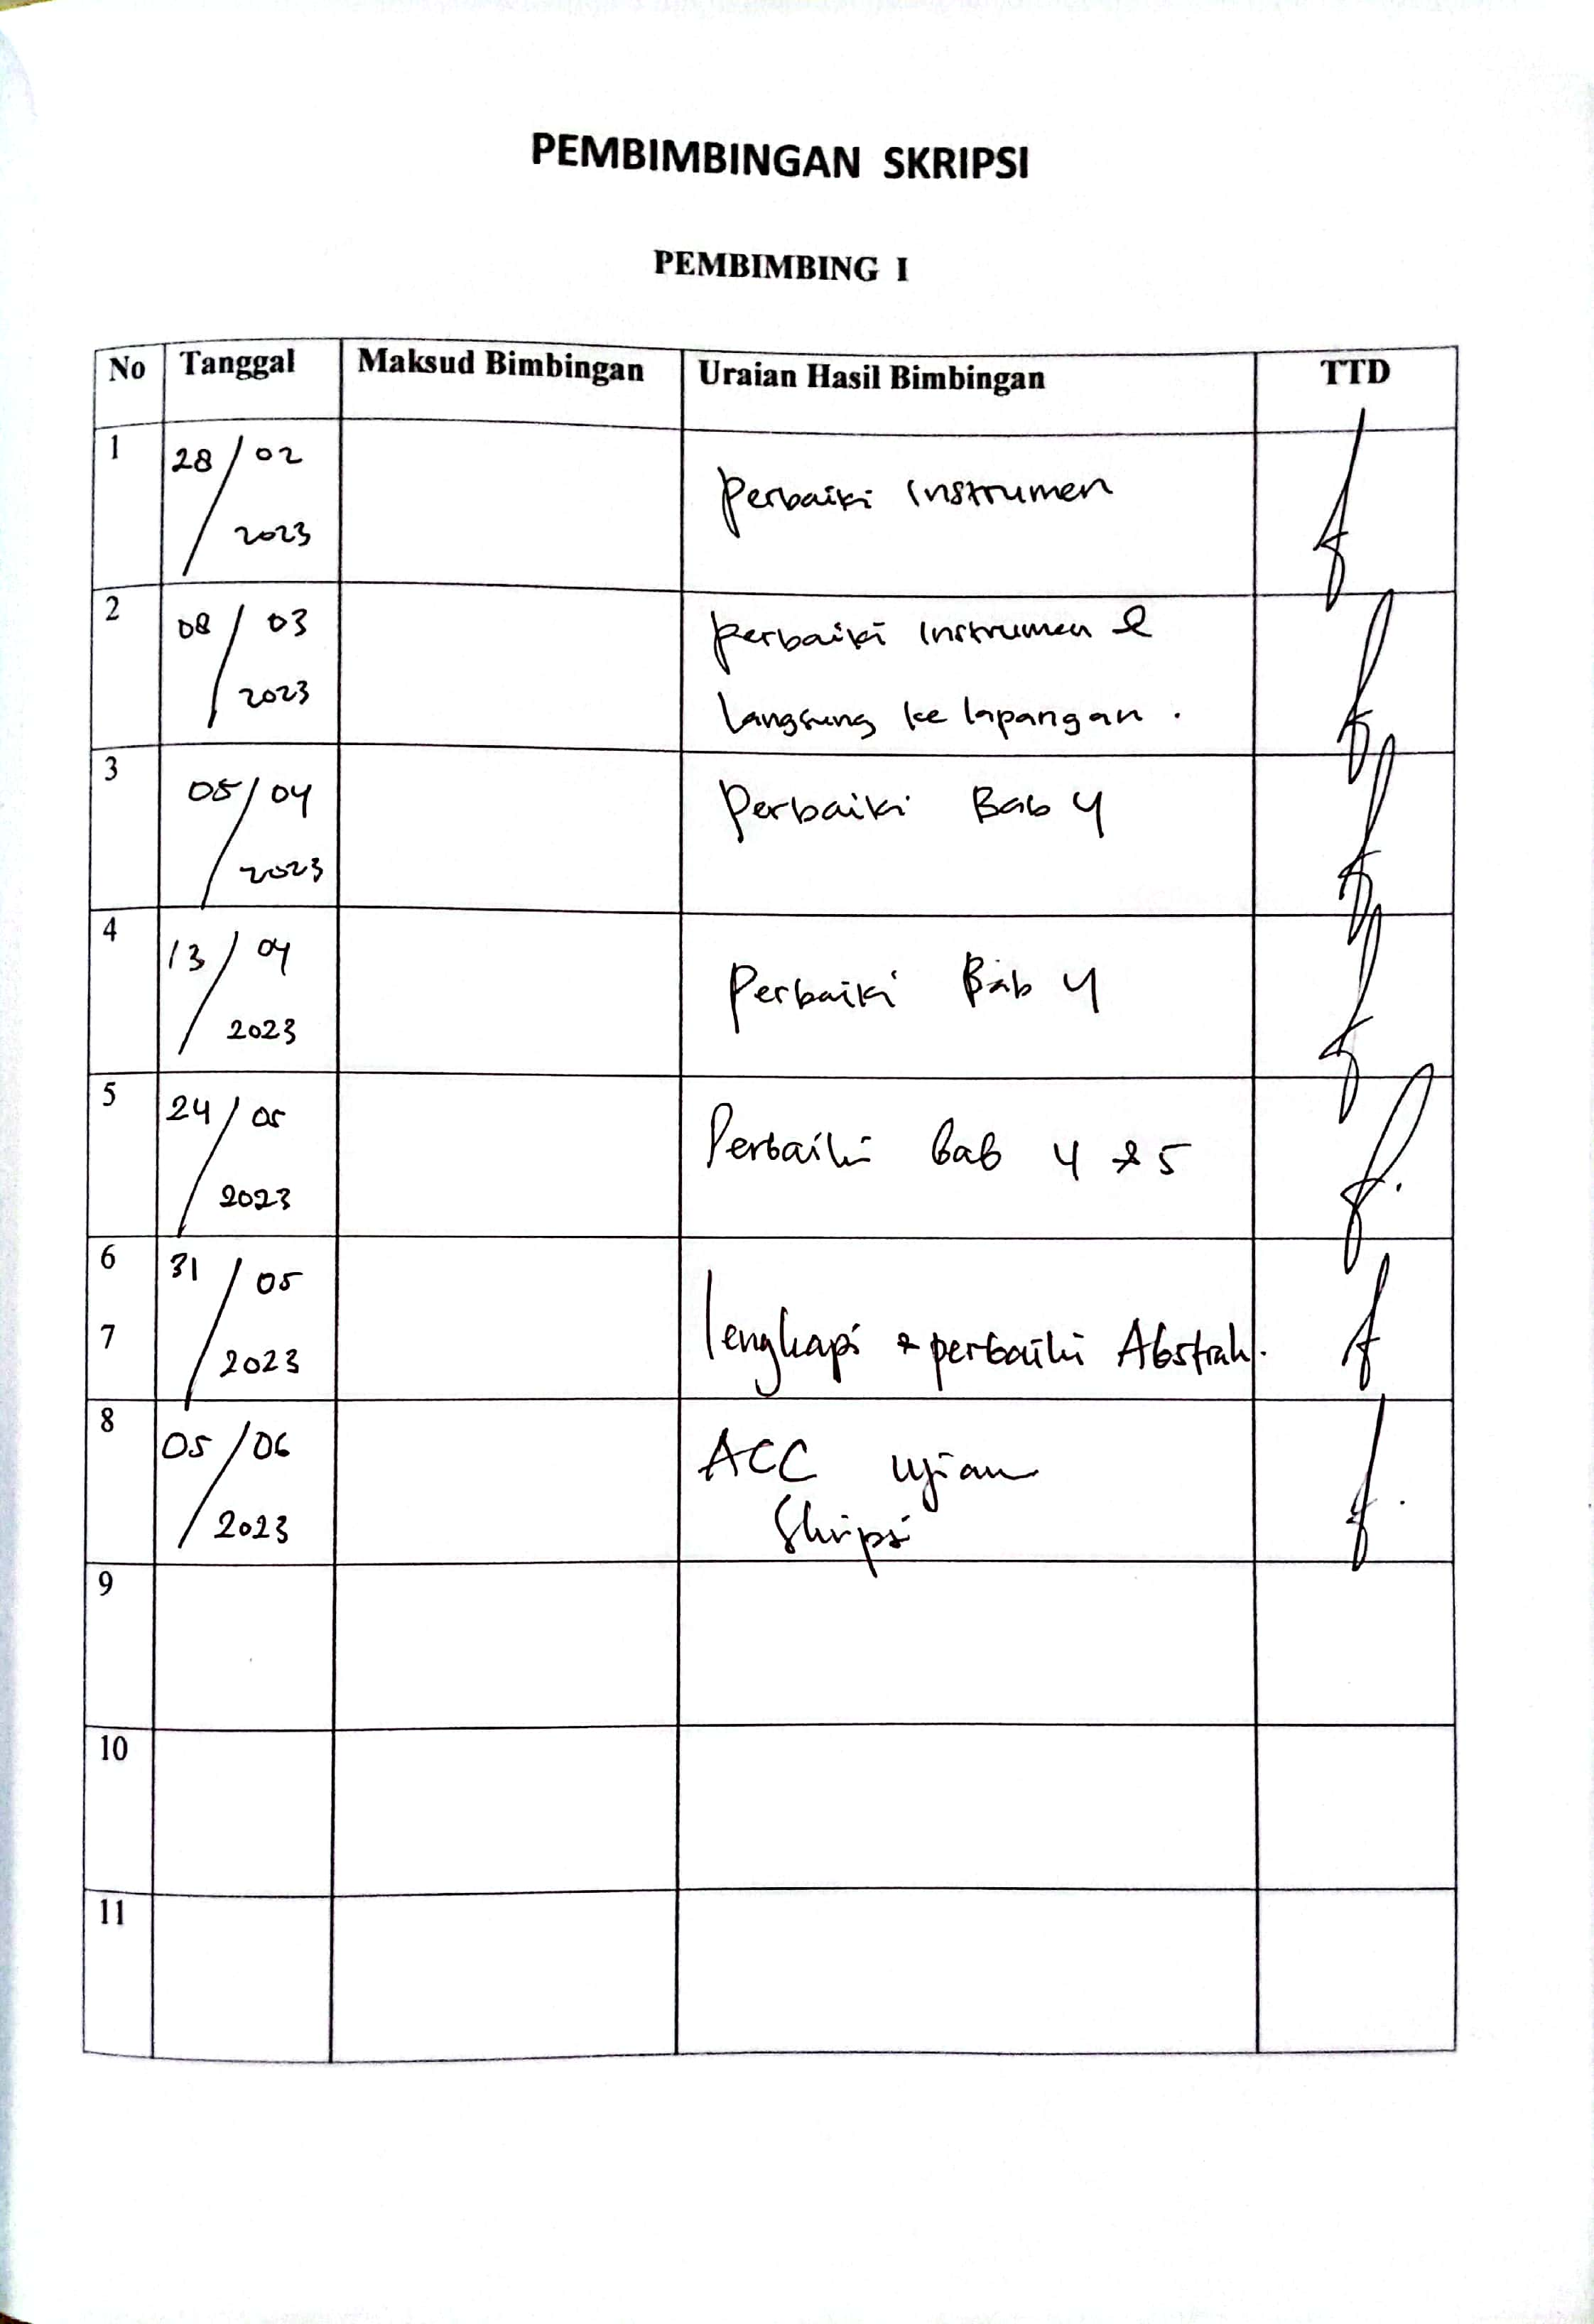 PEMBIMBINGAN SKRIPSI
PEMBIMBING I
No Tanggal Maksud Bimbingan Uraian Hasil Bimbingan TTD
1 28/02 2023 Perbaiki Instrumen
2 08/03 2023 Perbaiki Instrumen &
langsung ke lapangan .
3 05/04 2023 Perbaiki Bab 4
4 13/04 2023 Perbaiki Bab 4
5 24/05 2023 Perbaiki Bab 4 & 5
6 31/05
7 2023 lengkapi & perbaiki Abstrak.
8 05/06 ACC ujian
2023 Skripsi
9
10
11